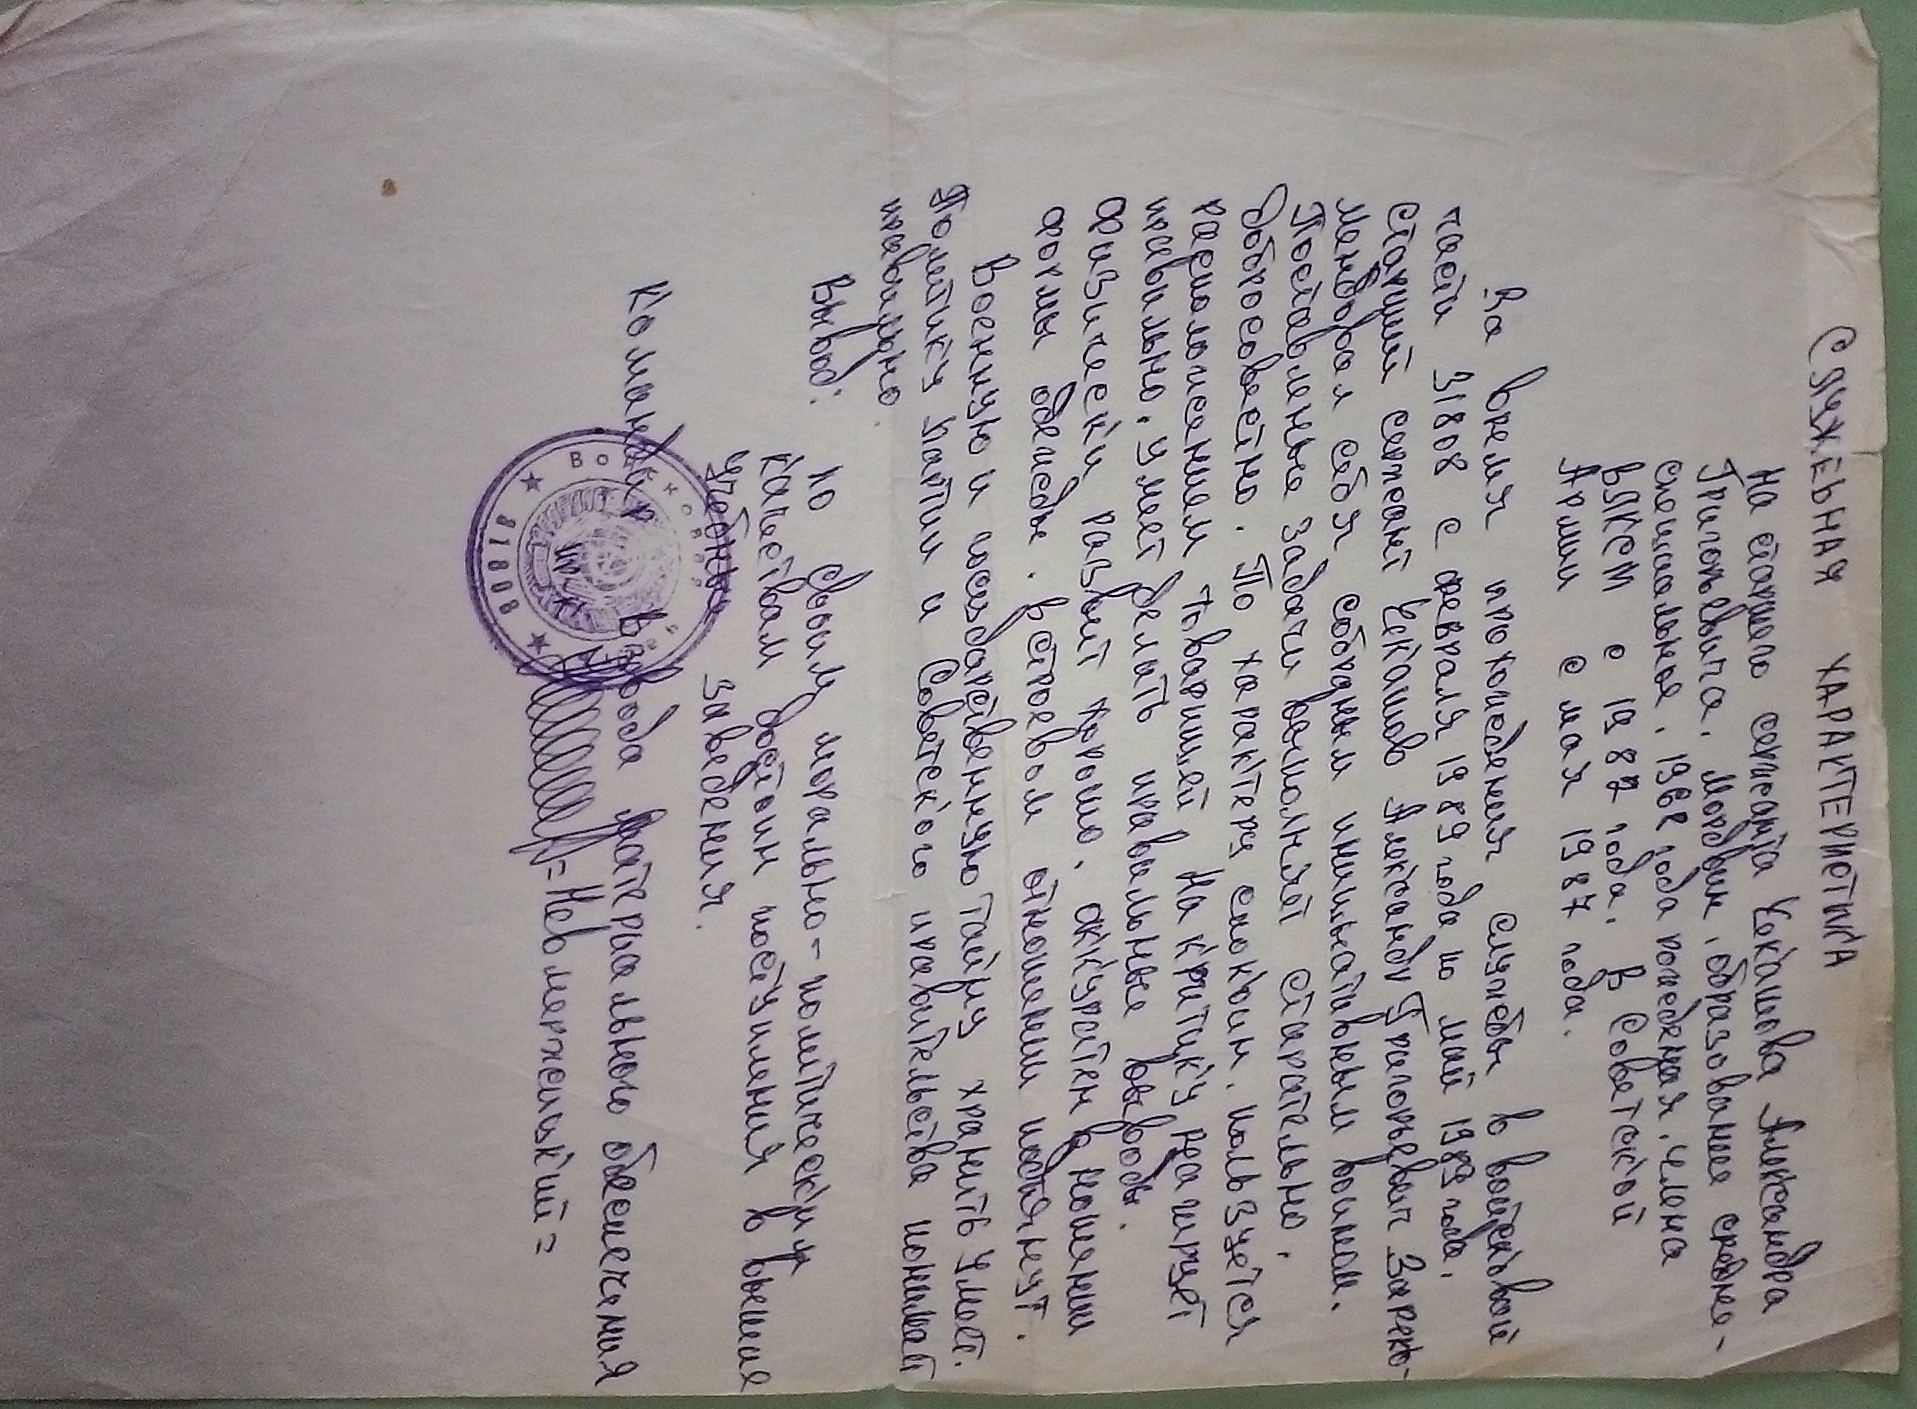 СЛУЖЕБНАЯ ХАРАКТЕРИСТИКА
На старшего сержанта Чекашова Александра
Григорьевича. мордвин, образование средне-
специальное. 1968 года рождения. члена
ВЛКСМ с 1982 года. В Советской
Армии с мая 1987 года.
За время прохождения службы в войсковой
части 31808 с февраля 1989 года по май 1989 года.
старший сержант Чекашов Александр Григорьевич Зареко-
мендовал себя собраным инициативным воином.
Поставленные задачи выполняет старательно.
Добросовестно. По характеру спокоин. пользуется
расположением товарищей На критику реагирует
правильно. умеет делать правильные выводы.
Физически развит хорошо. аккуратен в ношении
формы одежды. в строевом отношении подтянут.
Военную и государственную тайну хранить умеет.
Политику Партии и Советского правительства понимает
правильно
Вывод: по своим морально-политическим
качествам достоин поступления в высшие
учебные заведения.
Командир взвода материального обеспечения
пр-к =Невмержицкий=
Войсковая часть
31808